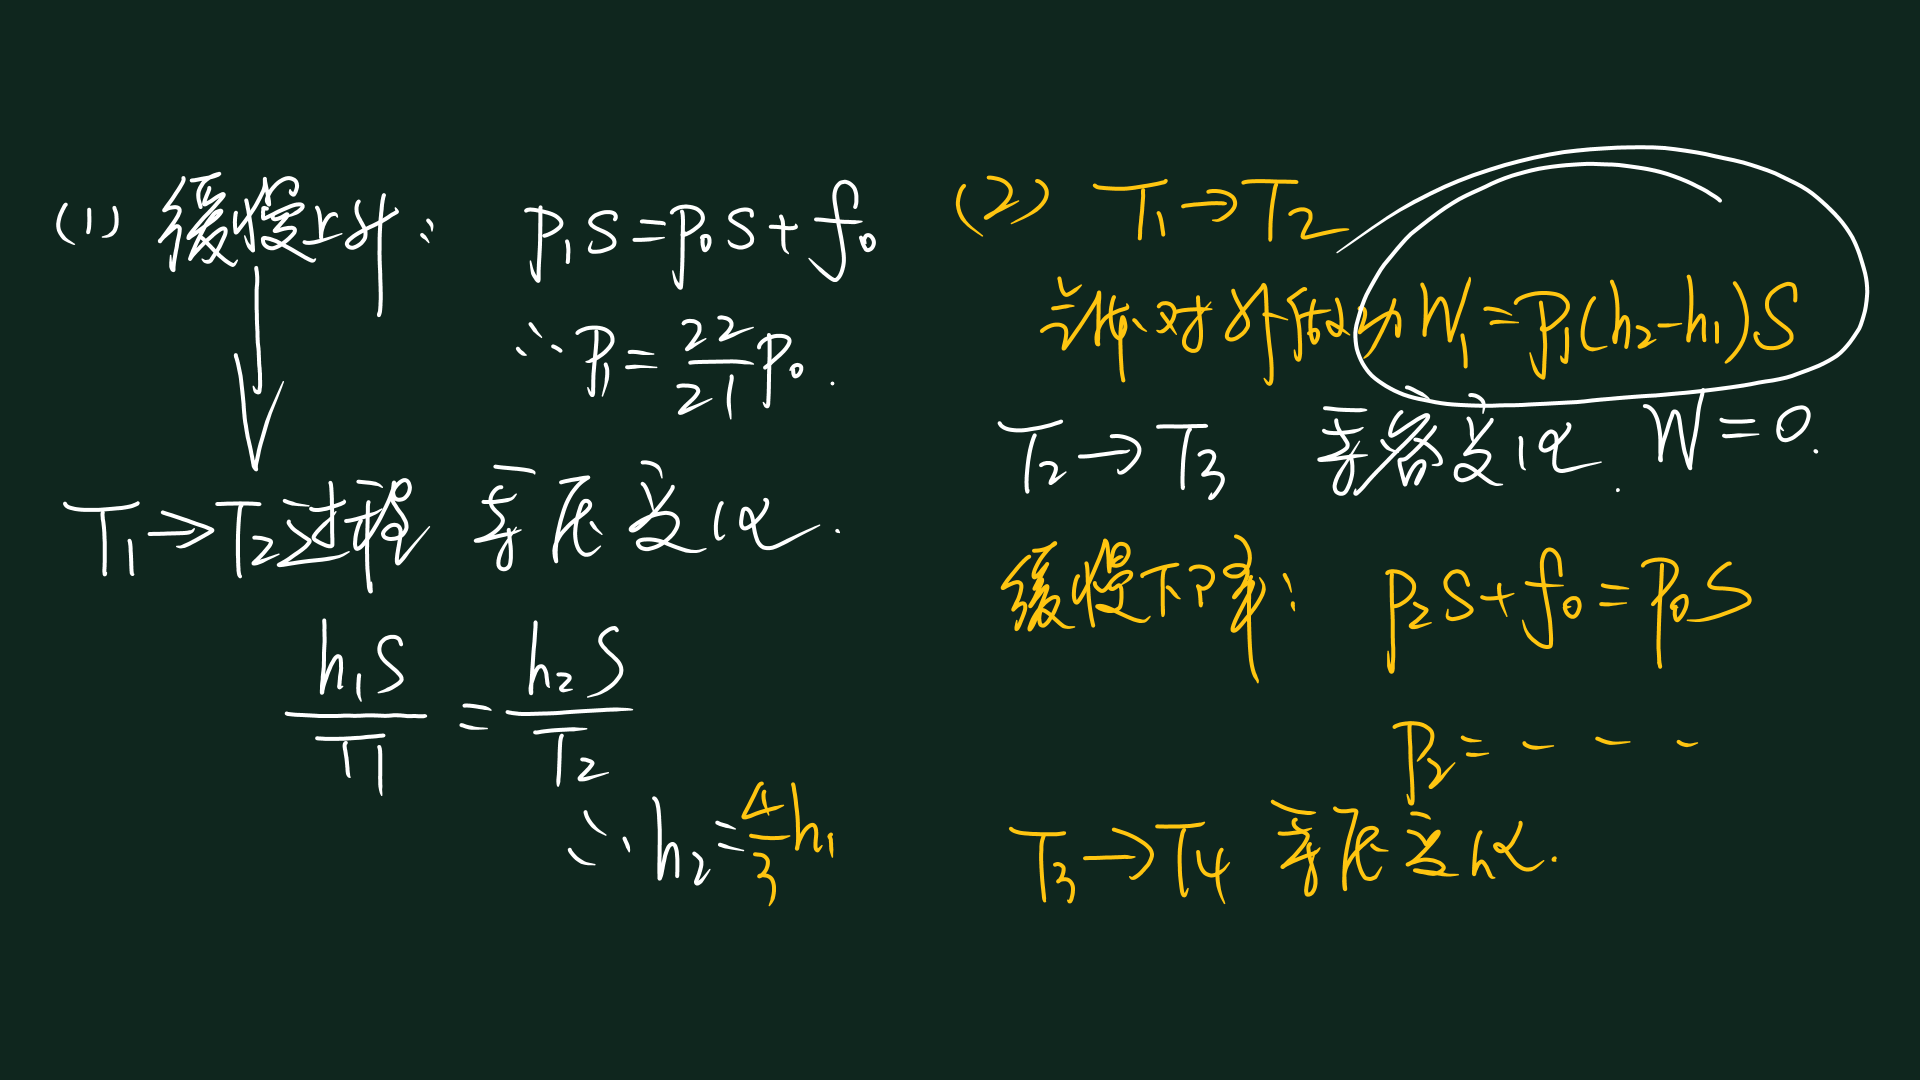 (1) 缓慢上升: p₁S=p₀S+f₀
∴ p₁=22/21 p₀.
T₁→T₂过程 等压变化.
h₁S/T₁ = h₂S/T₂
∴ h₂=4/3 h₁
(2) T₁→T₂
气体对外做功W₁=p₁(h₂-h₁)S
T₂→T₃ 等容变化. W=0.
缓慢下降: p₂S+f₀=p₀S
p₂=- - -
T₃→T₄ 等压变化.